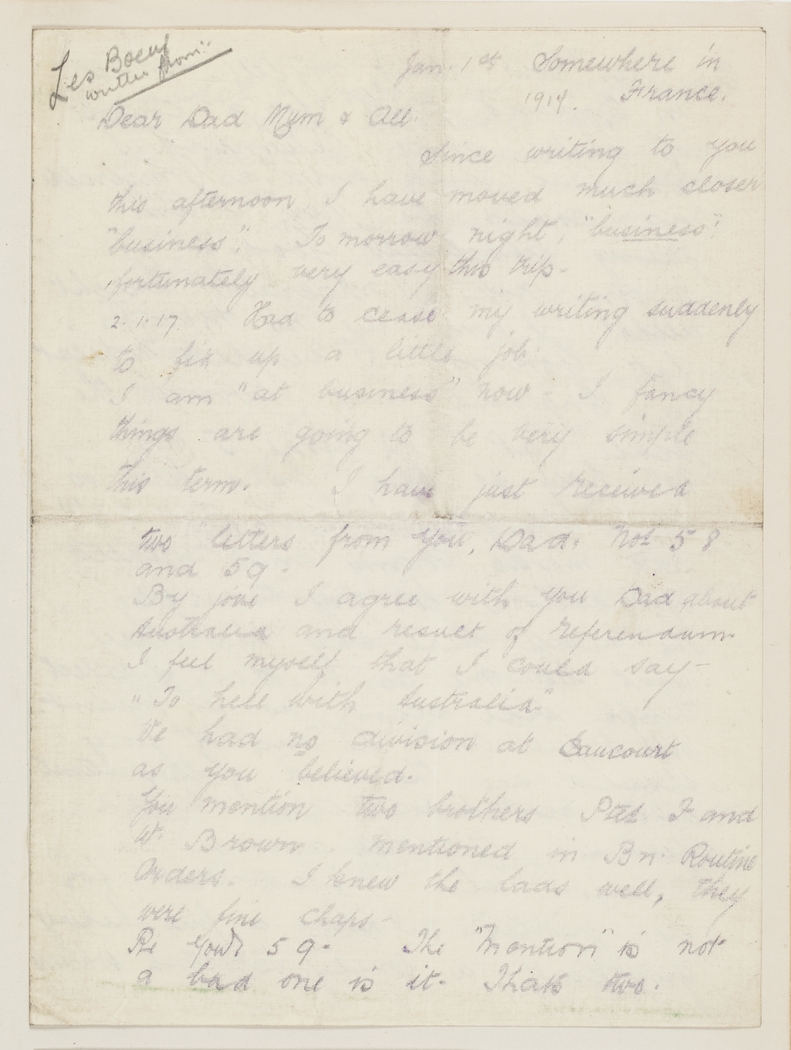 Les Boeuf
written from:
Jan. 1st Somewhere in
1917. France.
Dear Dad Mum & All.
Since writing to you
this afternoon I have moved much closer
"business". Tomorrow night, "business"
fortunately very easy this trip.
2.1.17 Had to cease my writing suddenly
to fix up a little job.
I am "at business" now - I fancy
things are going to be very simple
this term. I have just received
two letters from you, Dad. No's 58
and 59.
By jove I agree with you Dad about
Australia and result of referendum.
I feel myself that I could say -
"To hell with Australia"
We had no division at
as you believed.
You mention two brothers Ptes F and
W. Brown mentioned in Bn. Routine
Orders. I knew the lads well, they
were fine chaps -
Re your 59. The "Mention" is not
a bad one is it. Thats two.